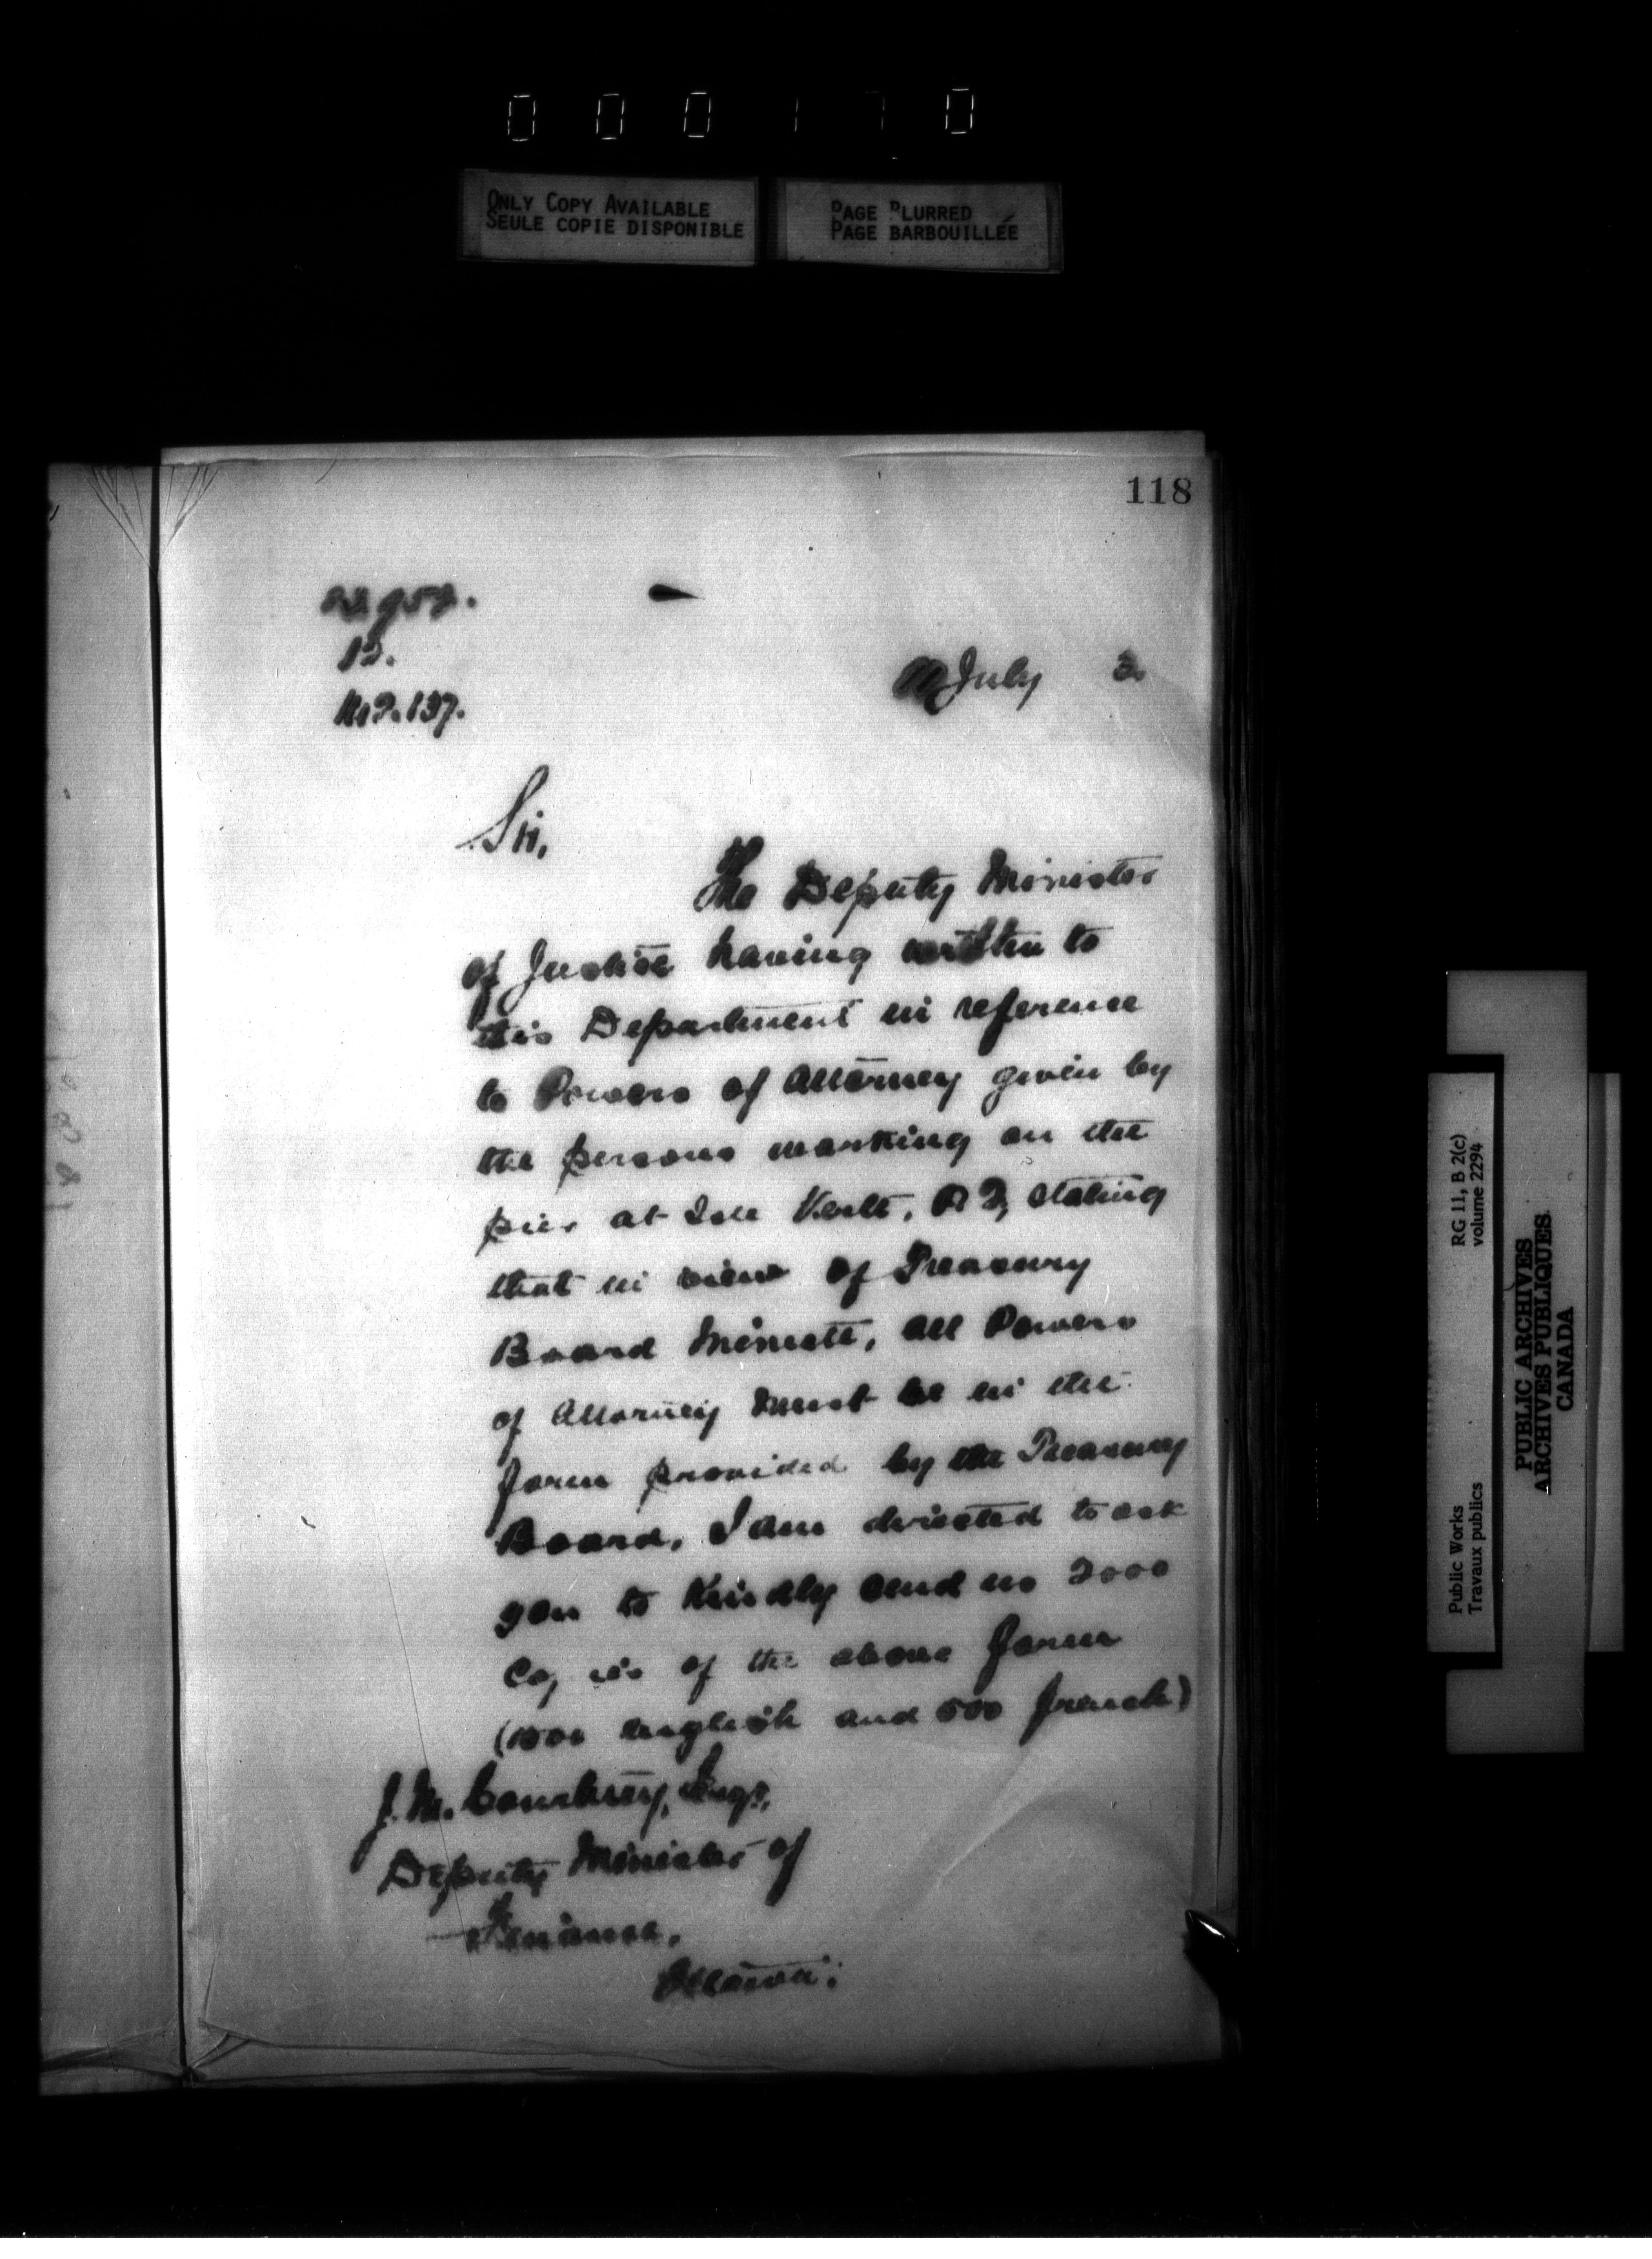 ONLY COPY AVAILABLE
SEULE COPIE DISPONIBLE
PAGE BLURRED
PAGE BARBOUILLÉE
118
12.
137.
July
Sir,
The Deputy Minister
of Justice having written to
this Department in reference
to Powers of Attorney given by
the persons working on the
pier at Isle Verte, P Q, stating
that in view of Treasury
Board Minute, all Powers
of Attorney must be in the
form provided by the Treasury
Board, I am directed to ask
you to kindly send us 2000
Copies of the above form
(1500 english and 500 french)
J. M. Courtney, Esqr.,
Deputy Minister of
Finance,
Ottawa.
Public Works
Travaux publics
RG 11, B 2(c)
volume 2294
PUBLIC ARCHIVES
ARCHIVES PUBLIQUES
CANADA